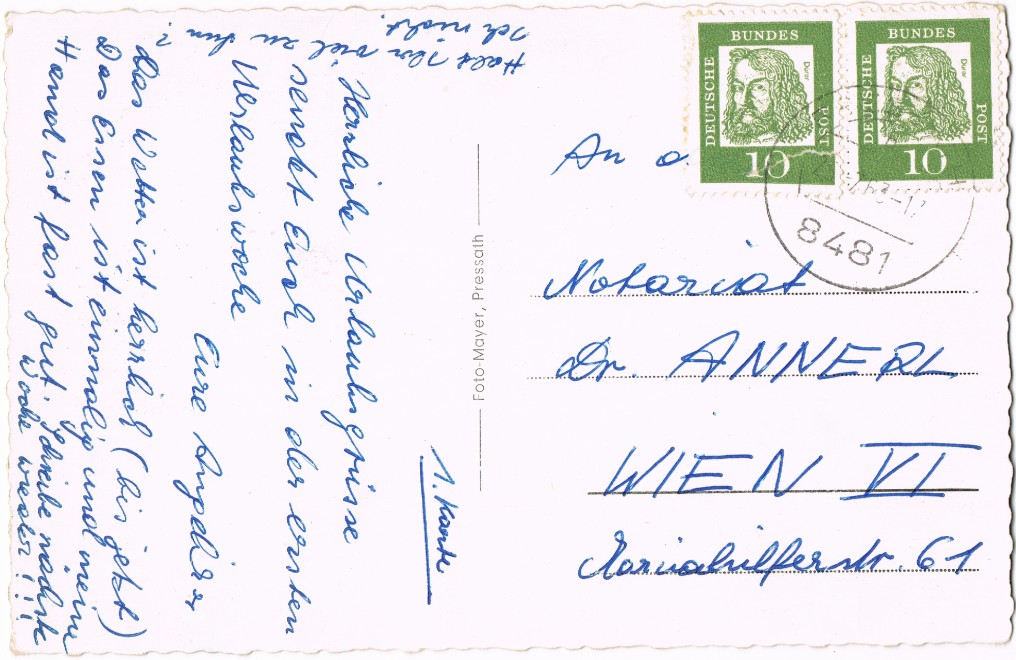 1. Karte
Herrliche Urlaubsgrüsse
sendet Euch in der ersten
Urlaubswoche
Eure Angelika
Das Wetter ist herrlich (bis jetzt)
Das Essen ist einmalig und meine
Hand ist fast gut. Schreibe nächste
Woche wieder!!!
Habt Ihr viel zu tun?
Ich nicht.
Foto-Mayer, Pressath
DEUTSCHE BUNDES POST
Dürer
10
DEUTSCHE BUNDES POST
Dürer
10
8481
An
Notariat
Dr. ANNERL
WIEN VI
Mariahilferstr. 61